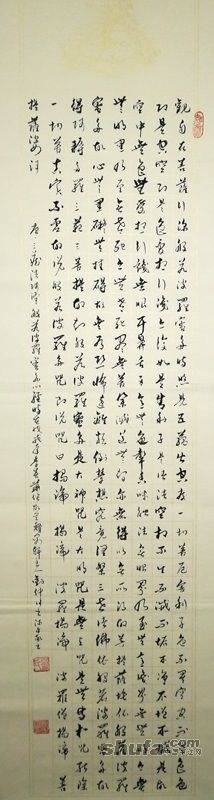 觀自在菩薩行深般若波羅蜜多時照見五蘊皆空度一切苦厄舍利子色不異空空不異色色
即是空空即是色受想行識亦復如是舍利子是諸法空相不生不滅不垢不淨不增不減是故
空中無色無受想行識無眼耳鼻舌身意無色聲香味觸法無眼界乃至無意識界無無明亦
無無明盡乃至無老死亦無老死盡無苦集滅道無智亦無得以無所得故菩提薩埵依般若波羅
蜜多故心無罣礙無罣礙故無有恐怖遠離顛倒夢想究竟涅槃三世諸佛依般若波羅蜜多故
得阿耨多羅三藐三菩提故知般若波羅蜜多是大神咒是大明咒是無上咒是無等等咒能除
一切苦真實不虛故說般若波羅蜜多咒即說咒曰揭諦 揭諦 波羅揭諦 波羅僧揭諦 菩
提薩婆訶 唐三藏法師譯般若波羅蜜多心經
shufa.com